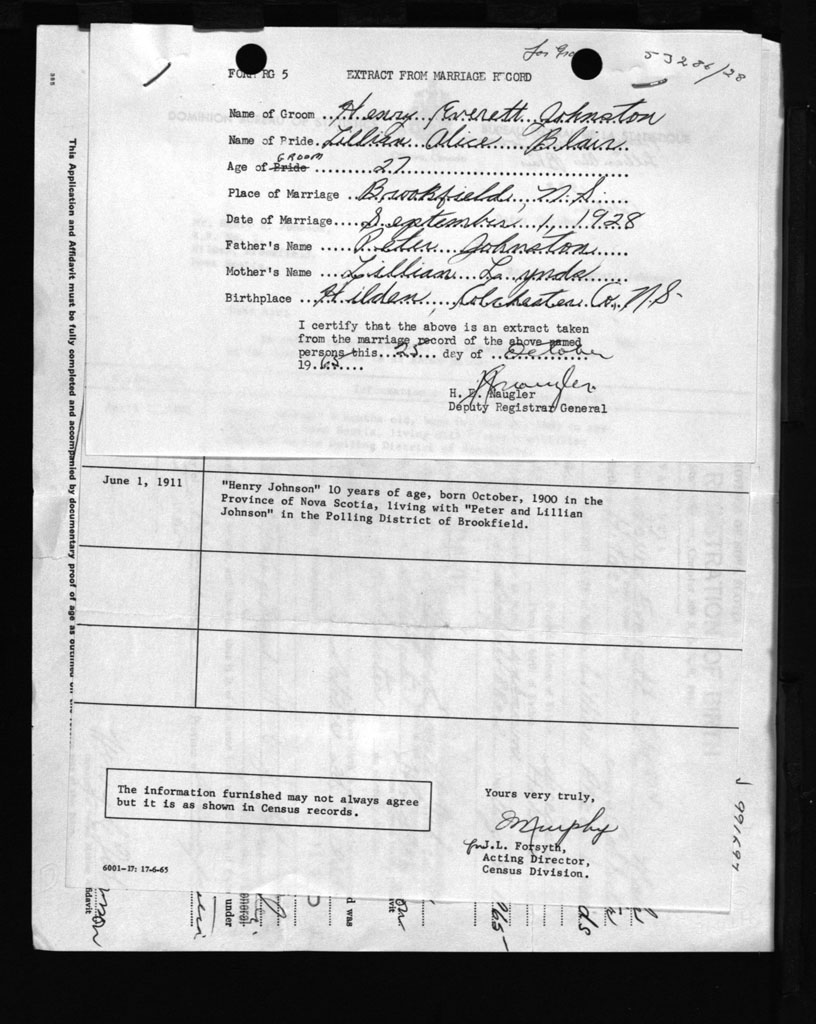 53286/28
FORM RG 5 EXTRACT FROM MARRIAGE RECORD
Name of Groom ...Henry Everett Johnston
Name of Bride. Lillian Alice Blair
GROOM
Age of Bride ......... 27 ..............................
Place of Marriage ..Brookfield, N.S.....
Date of Marriage....September 1, 1928
Father's Name .....Peter Johnston.....
Mother's Name ....Lillian Lynds......
Birthplace ...Hilden, Colchester Co., N.S.
I certify that the above is an extract taken
from the marriage record of the above named
persons this...25... day of ..October
1965....
H. E. Naugler
Deputy Registrar General
June 1, 1911
"Henry Johnson" 10 years of age, born October, 1900 in the
Province of Nova Scotia, living with "Peter and Lillian
Johnson" in the Polling District of Brookfield.
The information furnished may not always agree
but it is as shown in Census records.
Yours very truly,
Murphy
for J.L. Forsyth,
Acting Director,
Census Division.
6001-17: 17-6-65
This Application and Affidavit must be fully completed and accompanied by documentary proof of age as outlined on
J 991697
fidavit
under
d was
davit
1965-
ds